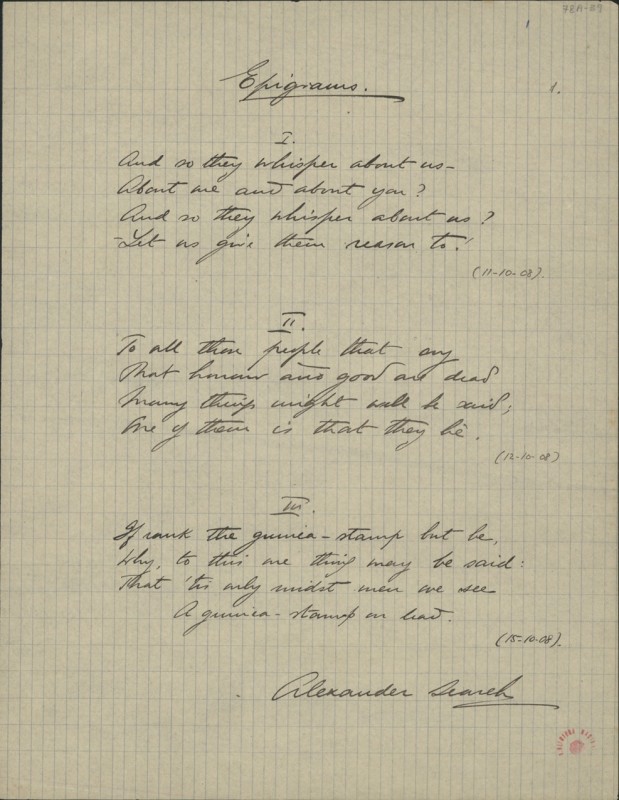 78A-59
1
1.
Epigrams.
I.
And so they whisper about us –
About me and about you?
And so they whisper about us?
– Let us give them reason to!
(11-10-08).
II.
To all those people that cry
That honour and good are dead
Many things might well be said;
One of them is that they lie.
(12-10-08)
III.
If rank the guinea-stamp but be,
Why, to this one thing may be said:
That 'tis only midst men we see
A guinea-stamp on lead.
(15-10-08).
Alexander Search